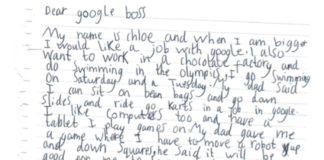 Dear google boss
My name is chloe and when I am bigger
I would like a job with google. I also
want to work in a chocolate factory and
do swimming in the olympics. I go swimming
on Saturday and a Tuesday. My dad said
I can sit on bean bags and go down
slides and ride go karts in a job in google.
I like computers too and have a
tablet I play games on. My dad gave me
a game where I have to move a robot up
and down squares, he said it will be
good for me to